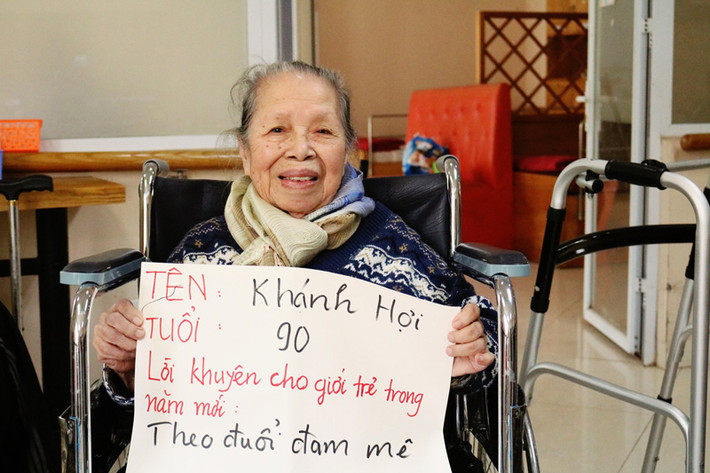 TÊN : Khánh Hợi
TUỔI : 90
Lời khuyên cho giới trẻ trong
năm mới :
Theo đuổi đam mê